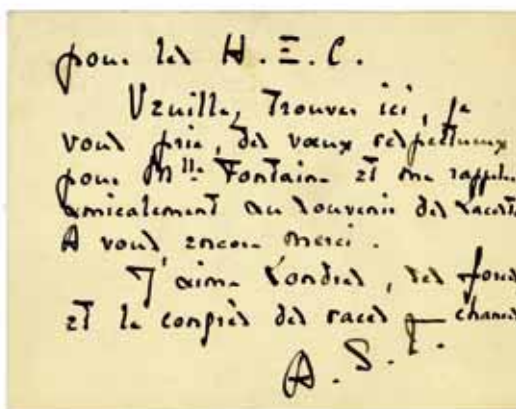 pour les H.E.C.
Veuillez trouver ici, je
vous prie, des vœux respectueux
pour Mlle Fontaine et me rappeler
amicalement au souvenir des
A vous encore merci.
J'aime Londres, ses
et le congrès des races
A. S. E.